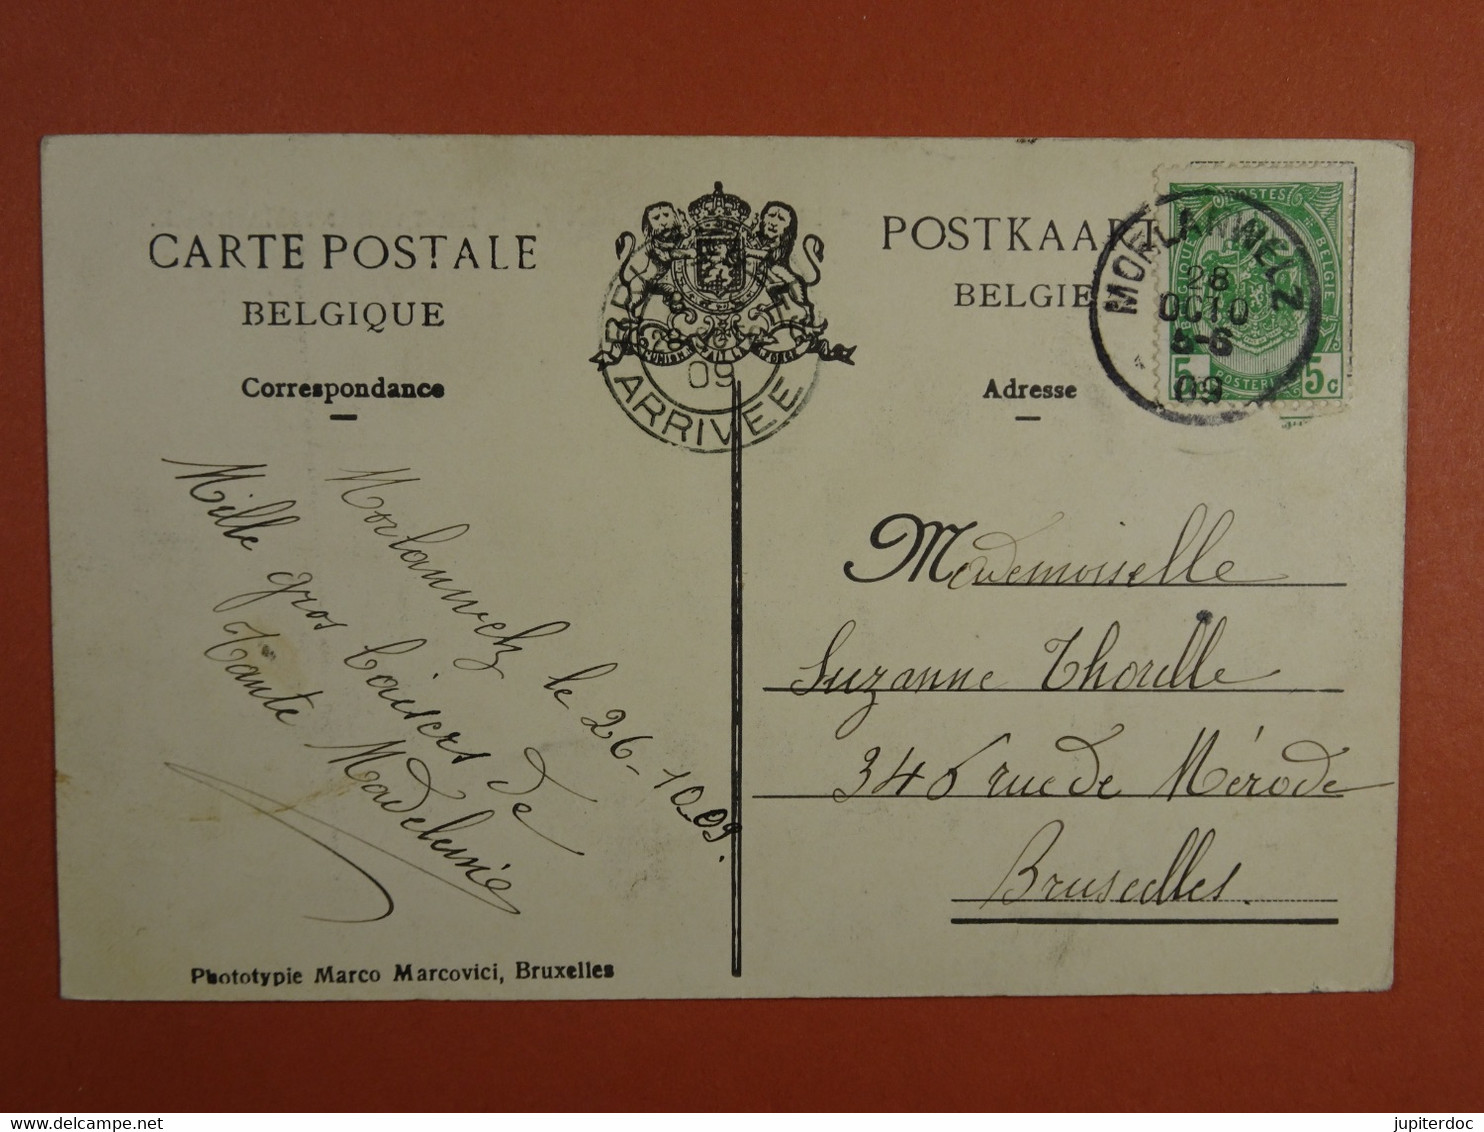 CARTE POSTALE
BELGIQUE
Correspondance
POSTKAART
BELGIE
Adresse
MORLANWELZ
28
OCTO
5-6
09
POSTES
5 5c
09
ARRIVEE
Morlanwelz le 26-10-09.
Mille gros baisers de
Tante Madeleine
Mademoiselle
Suzanne Thorelle
346 rue de Mérode
Bruxelles.
Phototypie Marco Marcovici, Bruxelles
jupiterdoc